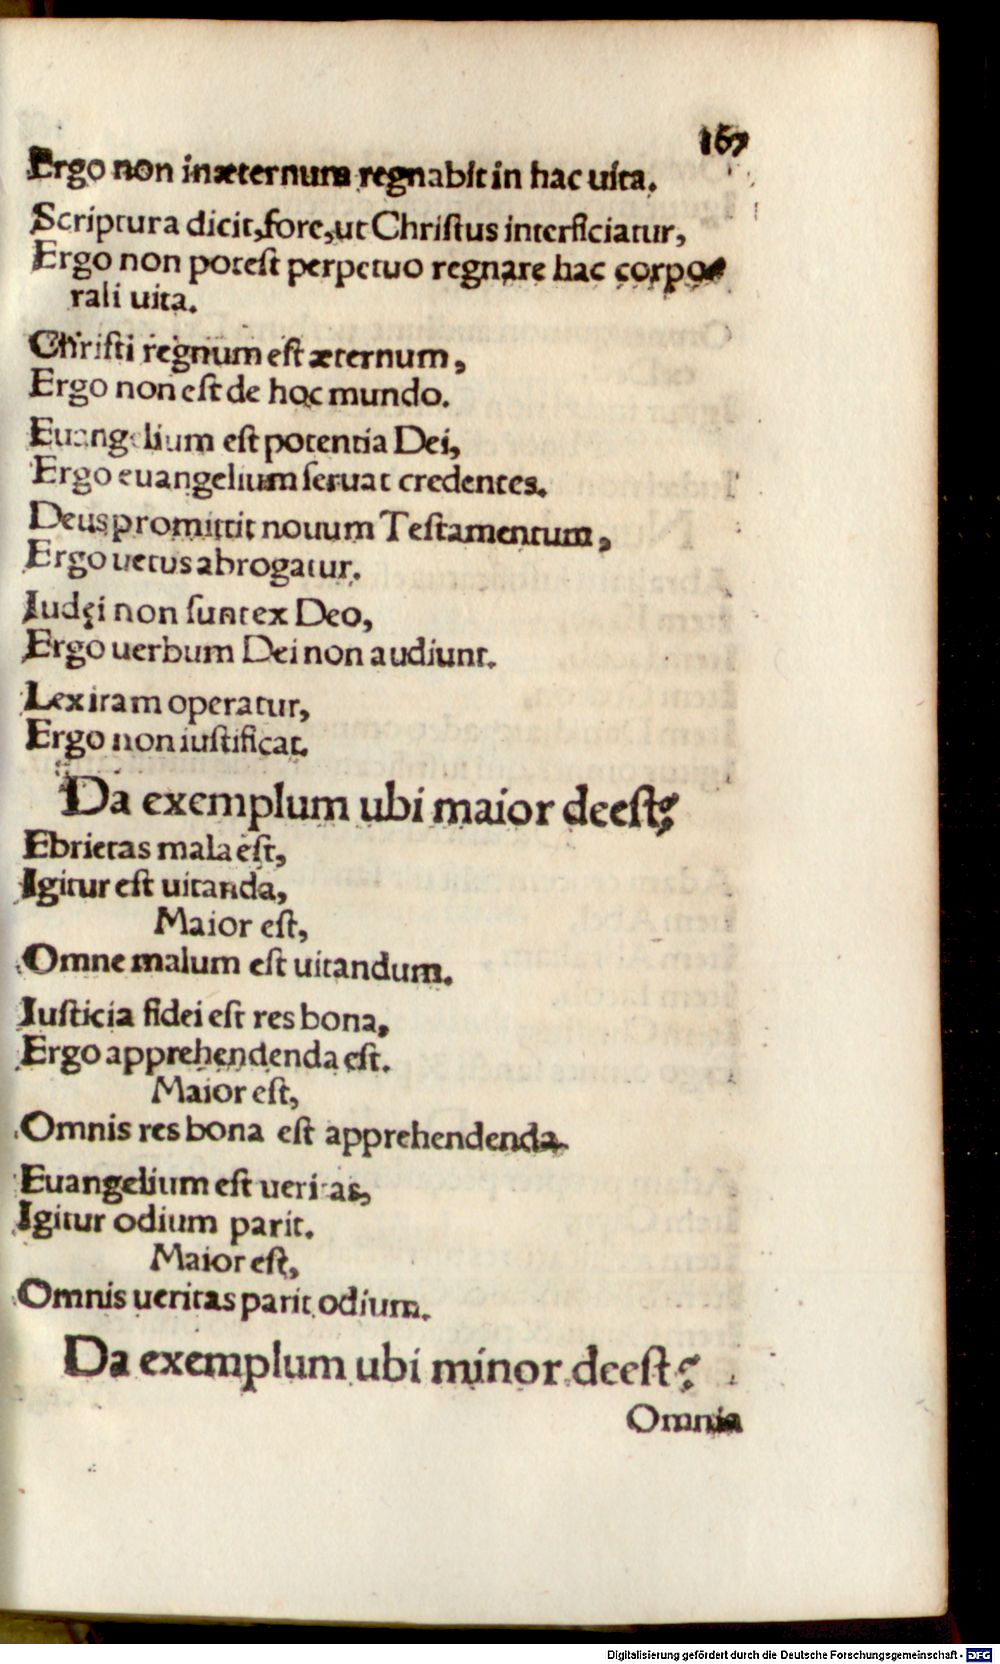 167
Ergo non in æternum regnabit in hac uita.
Scriptura dicit, fore, ut Christus interficiatur,
Ergo non potest perpetuo regnare hac corpo-
rali uita.
Christi regnum est æternum,
Ergo non est de hoc mundo.
Euangelium est potentia Dei,
Ergo euangelium seruat credentes.
Deus promittit nouum Testamentum,
Ergo uetus abrogatur.
Iudęi non sunt ex Deo,
Ergo uerbum Dei non audiunt.
Lex iram operatur,
Ergo non iustificat.
Da exemplum ubi maior deest?
Ebrietas mala est,
Igitur est uitanda,
Maior est,
Omne malum est uitandum.
Iusticia fidei est res bona,
Ergo apprehendenda est.
Maior est,
Omnis res bona est apprehendenda.
Euangelium est ueritas,
Igitur odium parit.
Maior est,
Omnis ueritas parit odium.
Da exemplum ubi minor deest?
Omnia
Digitalisierung gefördert durch die Deutsche Forschungsgemeinschaft - DFG